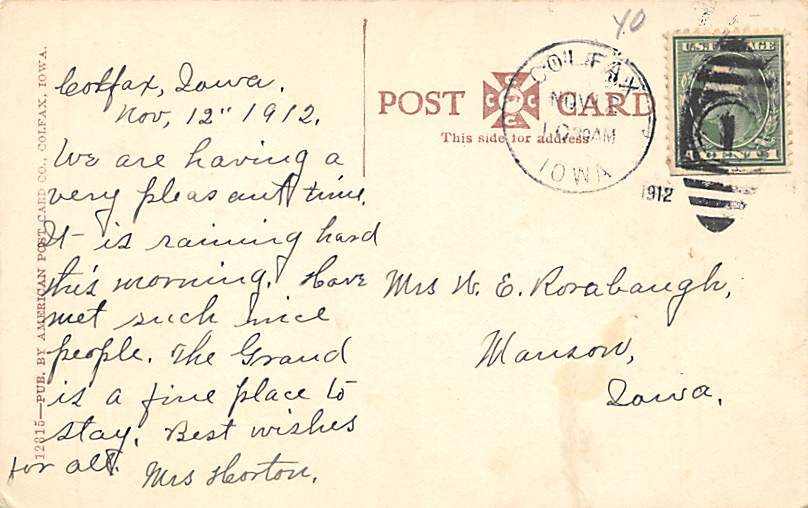 40
Colfax, Iowa.
Nov, 12" 1912.
We are having a
very pleasant time.
It is raining hard
this morning. Have
met such nice
people. The Grand
is a fine place to
stay. Best wishes
for all.
Mrs Horton.
12315—PUB. BY AMERICAN POST CARD CO., COLFAX, IOWA.
POST CARD
This side for address
COLFAX
NOV
10 30AM
IOWA
1912
U.S. POSTAGE
1 CENT 1
Mrs W. E. Rorabaugh,
Manson,
Iowa.